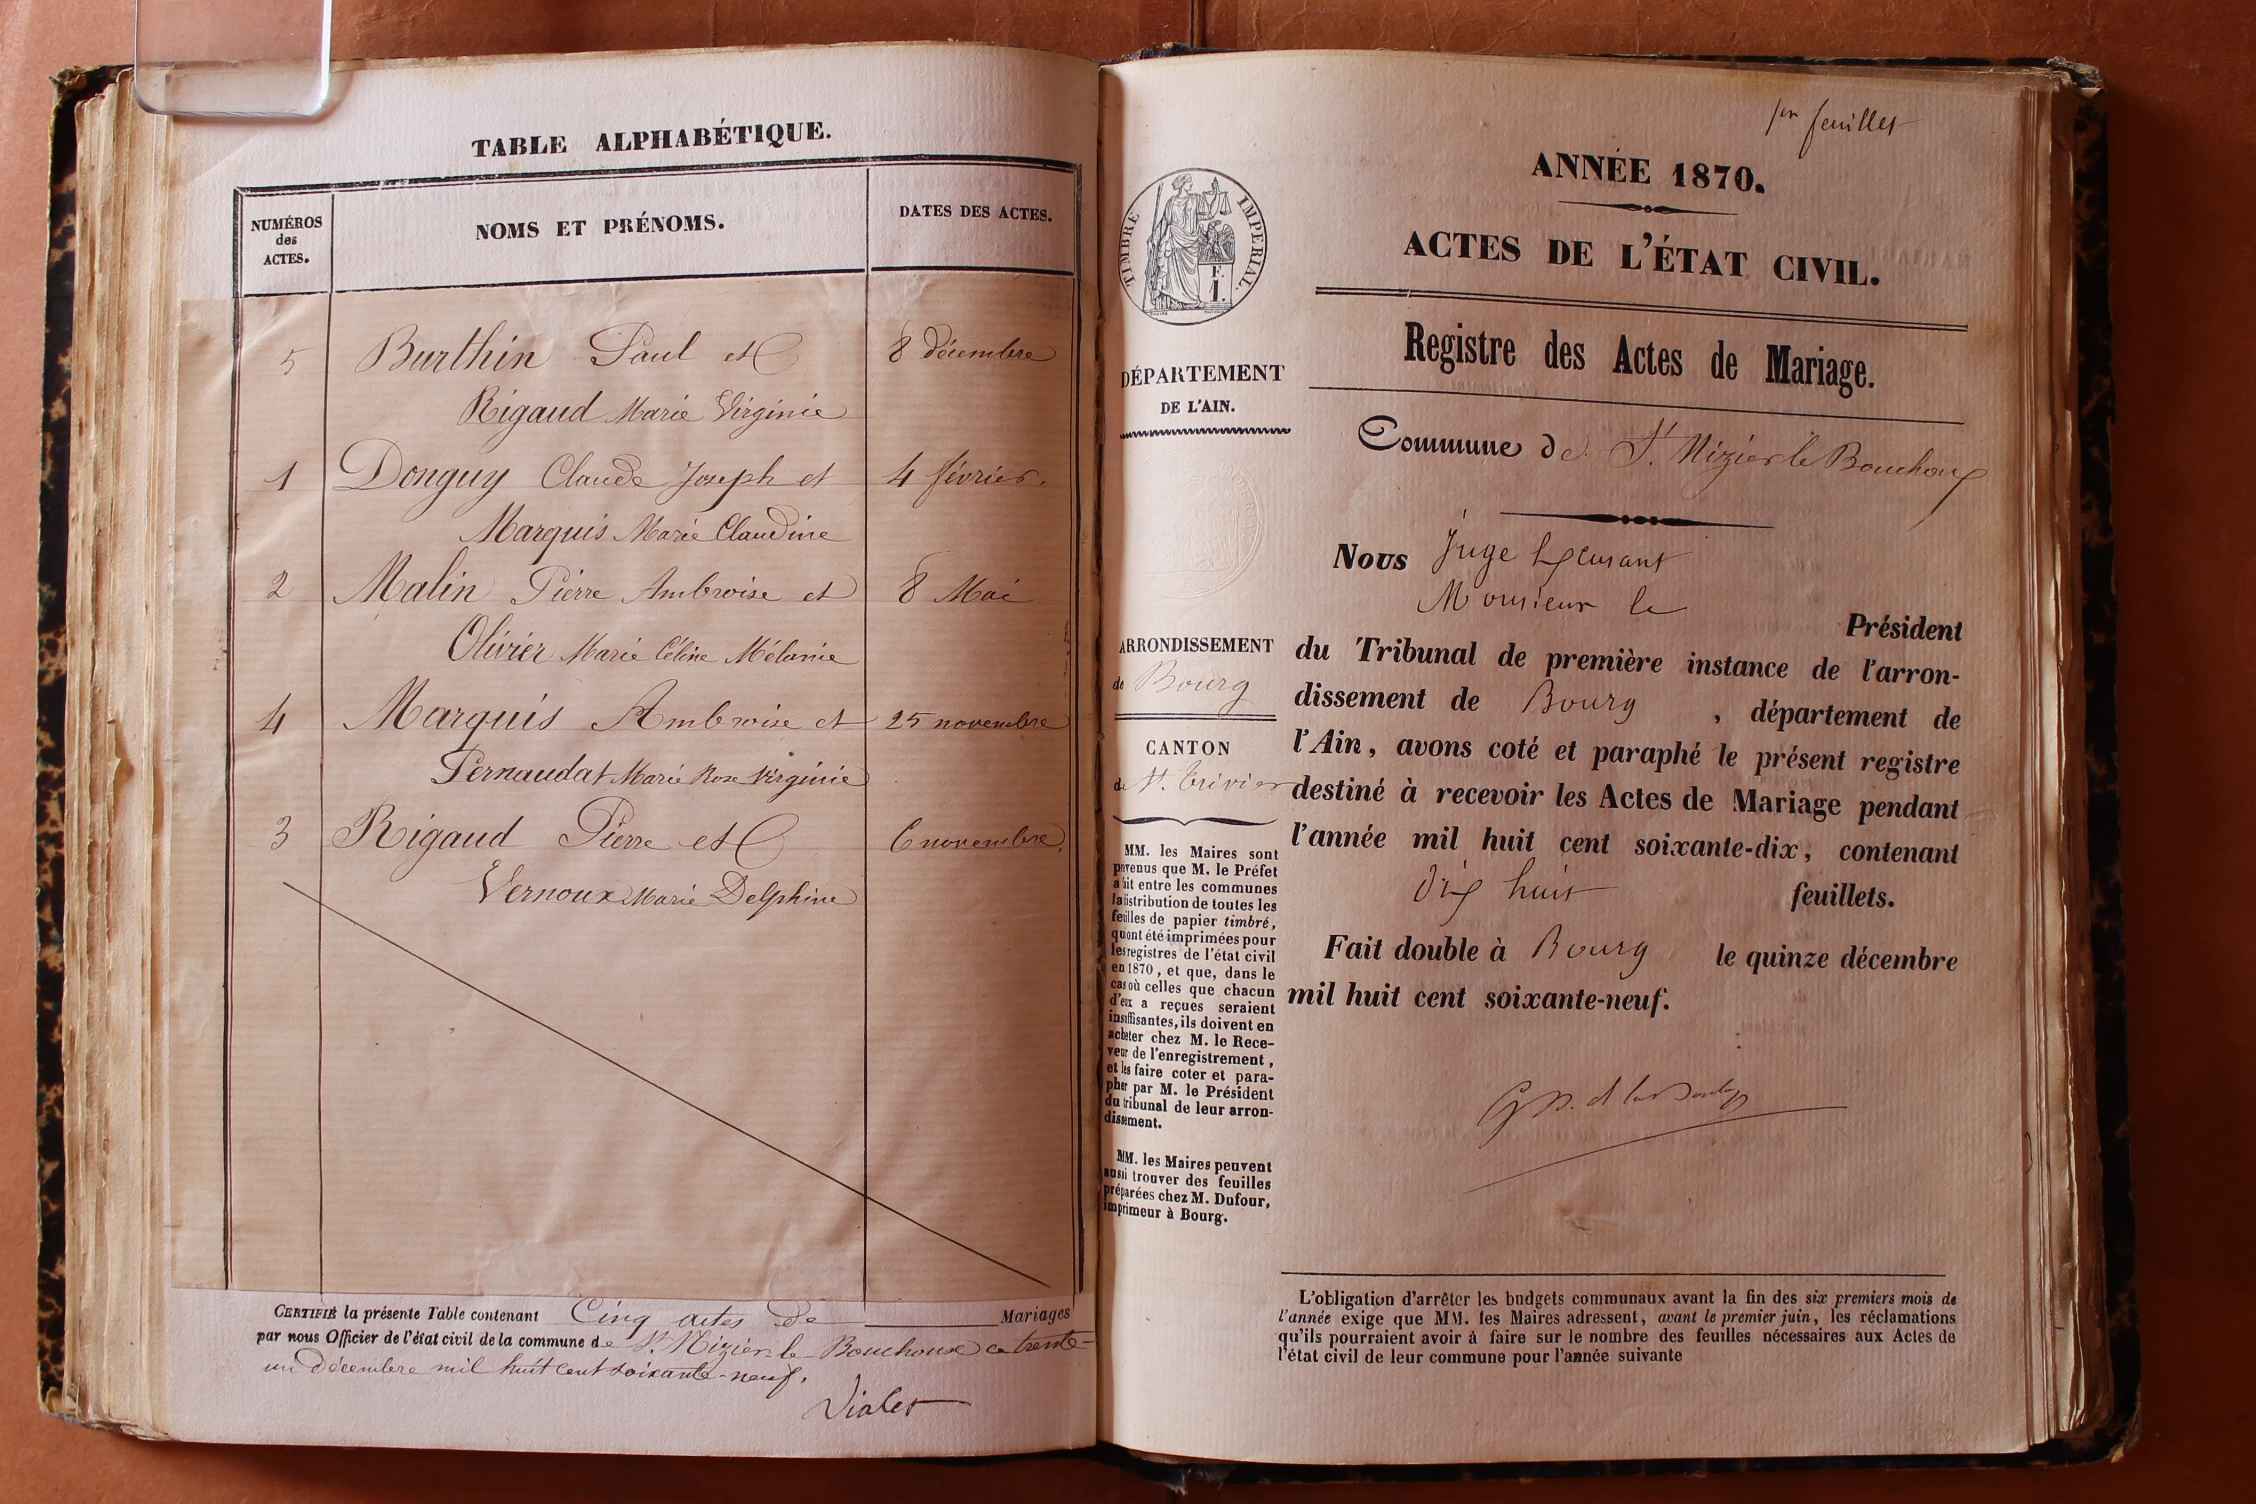 TABLE ALPHABÉTIQUE.
NUMÉROS
des
ACTES.
NOMS ET PRÉNOMS.
DATES DES ACTES.
5 Burthin Paul et 8 décembre
Rigaud Marie Virginie
1 Donguy Claude Joseph et 4 février.
Marquis Marie Claudine
2 Malin Pierre Ambroise et 8 Mai
Olivier Marie Céline Mélanie
4 Marquis Ambroise et 25 novembre
Pernaudat Marie Rose Virginie
3 Rigaud Pierre et 6 novembre.
Vernoux Marie Delphine
CERTIFIÉ la présente Table contenant Cinq actes de Mariages
par nous Officier de l'état civil de la commune de St. Nizier-le-Bouchoux ce trente-
un décembre mil huit cent soixante-neuf.
Vialet
feuillet
ANNÉE 1870.
ACTES DE L'ÉTAT CIVIL.
Registre des Actes de Mariage.
Commune de St. Nizier le Bouchoux
TIMBRE IMPERIAL.
F.
1.
DÉPARTEMENT
DE L'AIN.
ARRONDISSEMENT
de Bourg
CANTON
de St. Trivier
MM. les Maires sont
prévenus que M. le Préfet
a fait entre les communes
la distribution de toutes les
feuilles de papier timbré,
qu'ont été imprimées pour
les registres de l'état civil
en 1870, et que, dans le
cas où celles que chacun
d'eux a reçues seraient
insuffisantes, ils doivent en
acheter chez M. le Rece-
veur de l'enregistrement,
et les faire coter et para-
pher par M. le Président
du tribunal de leur arron-
dissement.
MM. les Maires peuvent
aussi trouver des feuilles
préparées chez M. Dufour,
imprimeur à Bourg.
Nous Juge
Monsieur le
Président
du Tribunal de première instance de l'arron-
dissement de Bourg, département de
l'Ain, avons coté et paraphé le présent registre
destiné à recevoir les Actes de Mariage pendant
l'année mil huit cent soixante-dix, contenant
dix huit feuillets.
Fait double à Bourg le quinze décembre
mil huit cent soixante-neuf.
L'obligation d'arrêter les budgets communaux avant la fin des six premiers mois de
l'année exige que MM. les Maires adressent, avant le premier juin, les réclamations
qu'ils pourraient avoir à faire sur le nombre des feuilles nécessaires aux Actes de
l'état civil de leur commune pour l'année suivante